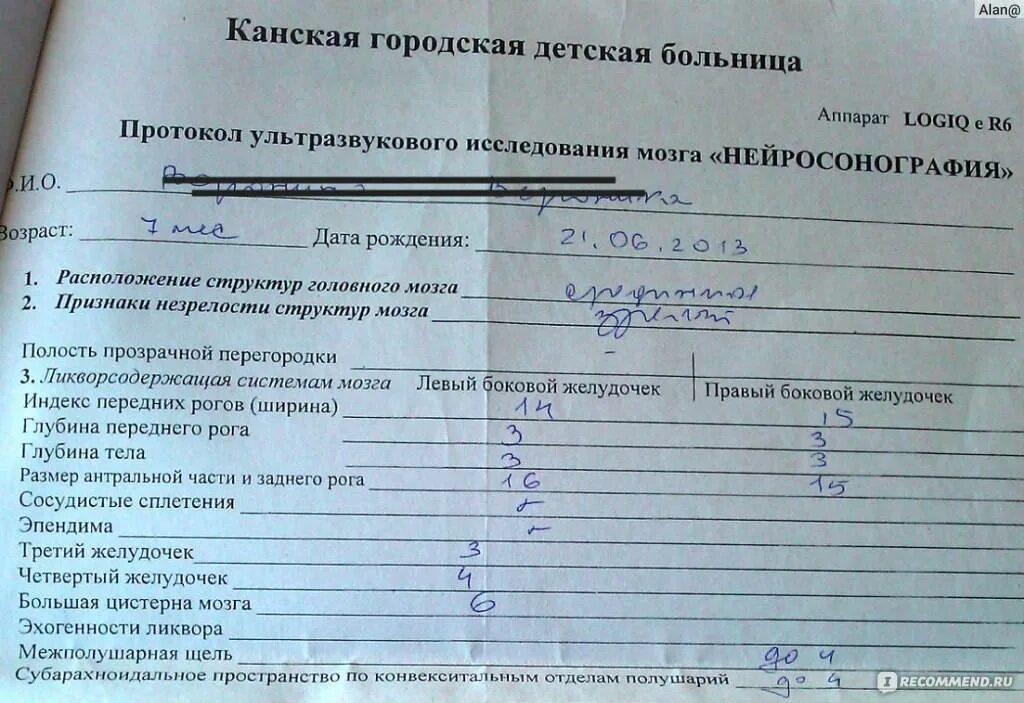 Alan@
Канская городская детская больница
Аппарат LOGIQ e R6
Протокол ультразвукового исследования мозга «НЕЙРОСОНОГРАФИЯ»
Ф.И.О.
Возраст: 7 мес Дата рождения: 21.06.2013
1. Расположение структур головного мозга срединное
2. Признаки незрелости структур мозга зрелый
Полость прозрачной перегородки -
3. Ликворсодержащая системам мозга Левый боковой желудочек Правый боковой желудочек
Индекс передних рогов (ширина) 14 15
Глубина переднего рога 3 3
Глубина тела 3 3
Размер антральной части и заднего рога 16 15
Сосудистые сплетения
Эпендима
Третий желудочек 3
Четвертый желудочек 4
Большая цистерна мозга 6
Эхогенности ликвора
Межполушарная щель до 4
Субарахноидальное пространство по конвекситальным отделам полушарий до 4
IRECOMMEND.RU